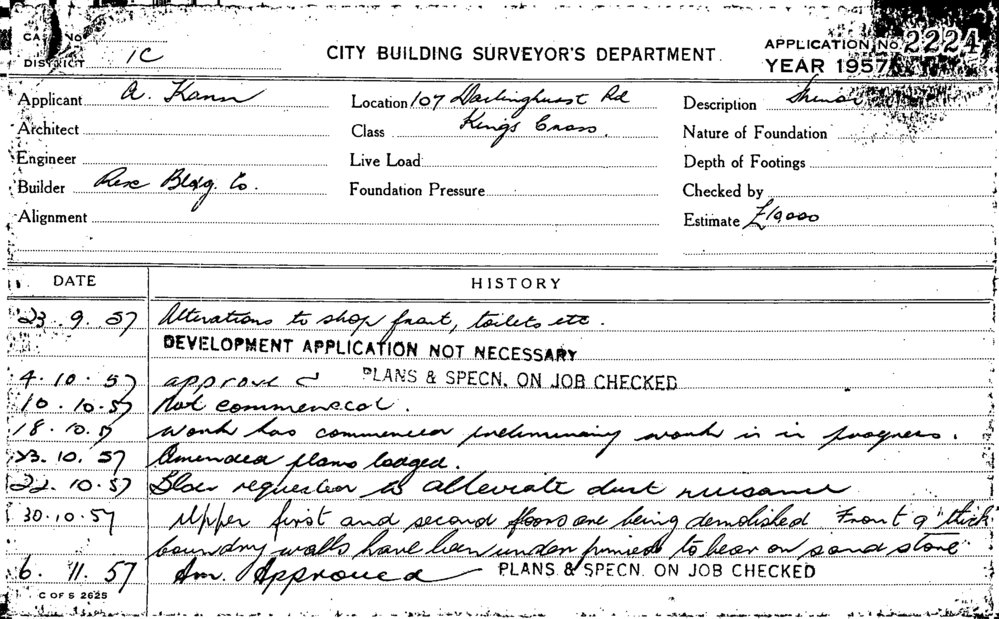 CITY BUILDING SURVEYOR'S DEPARTMENT
No
DISTRICT 1C
APPLICATION No. 2224
YEAR 1957
Applicant A. Kann
Location 107 Darlinghurst Rd
Description
Architect
Class Kings Cross.
Nature of Foundation
Engineer
Live Load
Depth of Footings
Builder Rex Bldg. Co.
Foundation Pressure
Checked by
Alignment
Estimate £19000
DATE HISTORY
23.9.57 Alterations to shop front, toilets etc.
DEVELOPMENT APPLICATION NOT NECESSARY
4.10.57 approved PLANS & SPECN. ON JOB CHECKED
10.10.57 Not commenced.
18.10.57 Work has commenced preliminary work is in progress.
23.10.57 Amended plans lodged.
22.10.57 requested to alleviate dust nuisance
30.10.57 Upper first and second floors are being demolished Front 9" thick
boundry walls have been under pinned to bear on sand stone
6.11.57 Am. Approved PLANS & SPECN. ON JOB CHECKED
C OF S 2625